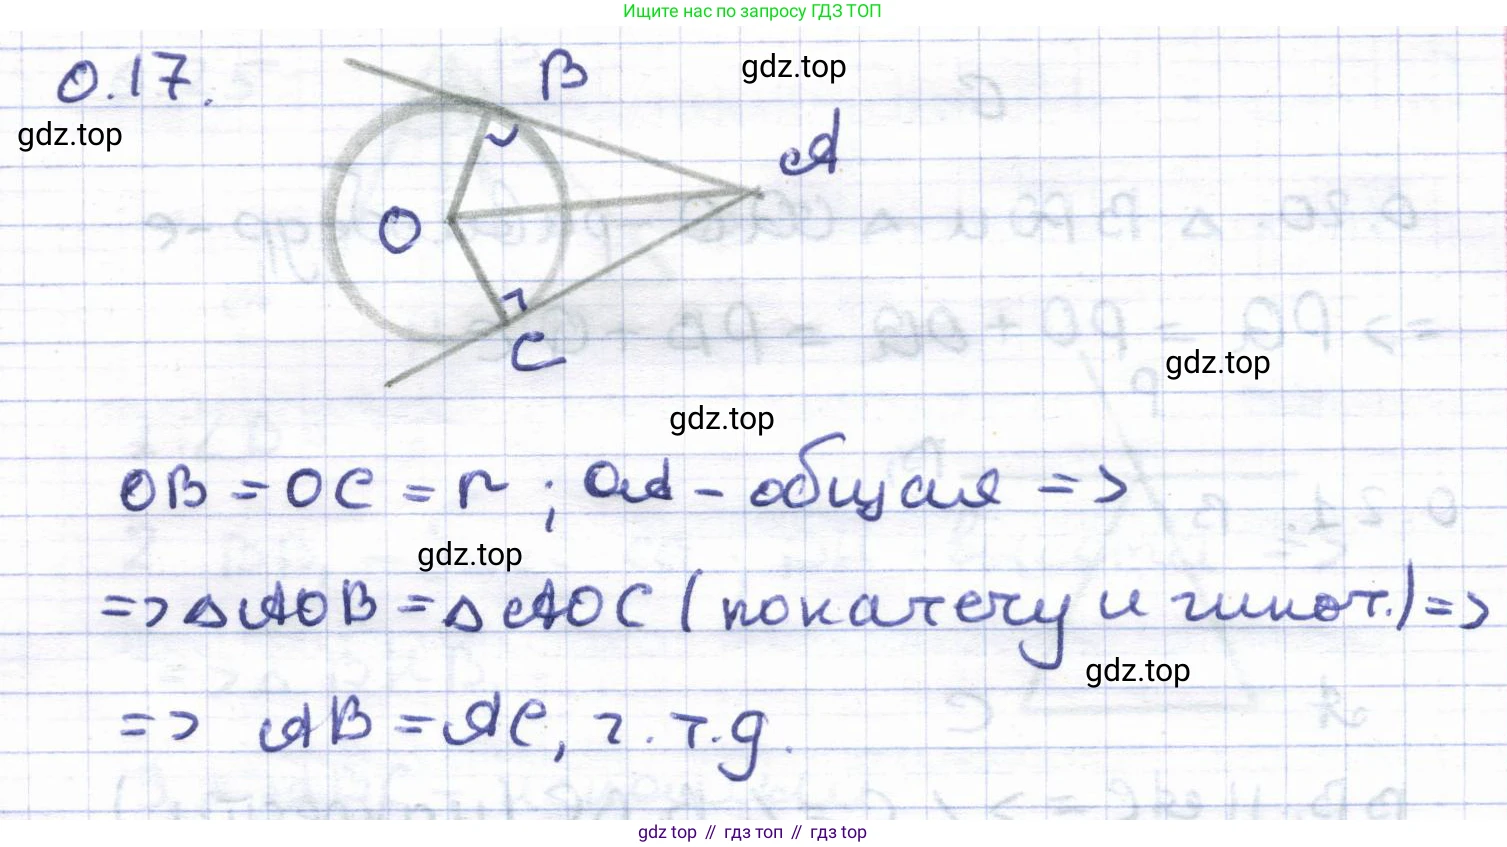 Ищите нас по запросу ГДЗ ТОП
0.17.
B
gdz.top
A
gdz.top
O
C
gdz.top
gdz.top
OB = OC = r ; OA - общая =>
gdz.top
=> △AOB = △AOC (по катету и гипот.) =>
gdz.top
=> AB = AC, ч.т.д.
gdz top // гдз топ // гдз top